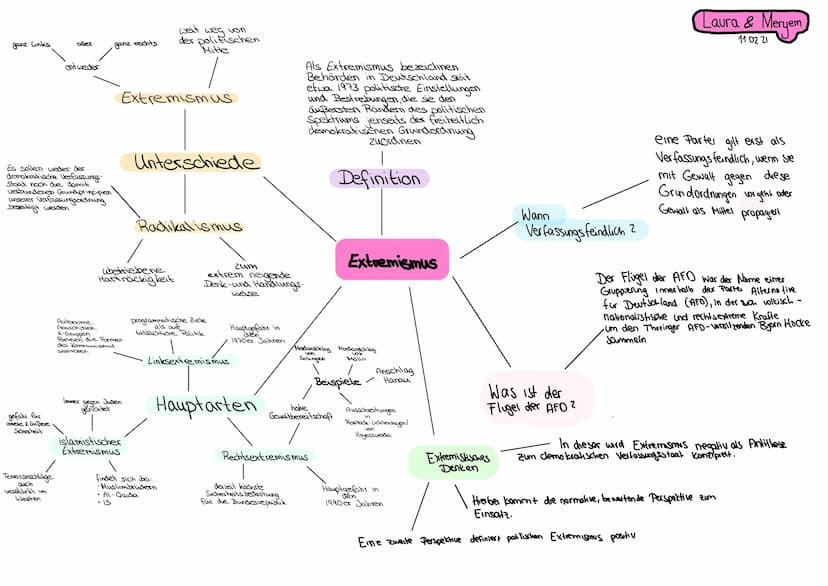 Laura & Meryem
11.02.21
weit weg von
der politischen
Mitte
ganz links oder ganz rechts
entweder
Extremismus
Unterschiede
Es sollen weder der
demokratische Verfassungs-
staat noch die damit
verbundenen Grundprinzipien
unserer Verfassungsordnung
beseitigt werden
Radikalismus
übertriebene
Hartnäckigkeit
zum
extrem neigende
Denk- und Handlungs-
weise
Als Extremismus bezeichnen
Behörden in Deutschland seit
etwa 1973 politische Einstellungen
und Bestrebungen, die sie den
äußersten Rändern des politischen
Spektrums jenseits der freiheitlich
demokratischen Grundordnung
zuordnen
Definition
Extremismus
eine Partei gilt erst als
Verfassungsfeindlich, wenn sie
mit Gewalt gegen diese
Grundordnungen vorgeht oder
Gewalt als Mittel propagiert
Wann
Verfassungsfeindlich?
Der Flügel der AFD war der Name einer
Gruppierung innerhalb der Partei Alternative
für Deutschland (AFD), in der
nationalistische und rechtsextreme Kräfte
um den Thüringer AFD-vorsitzenden Björn Höcke
sammeln
Was ist der
Flügel der AFD?
Autonome
Anarchisten
K-Gruppen
Parteien die Formen
des Kommunismus
programmatische Ziele
als auf
tatsächliche Politik
Hauptgefahr in
den
1970er Jahren
Linksextremismus
Hauptarten
immer gegen Juden
gerichtet
gefahr für
innere & äußere
Sicherheit
islamistischer
Extremismus
Terroranschläge
auch
verstärkt im
Westen
findet sich bei:
• Muslimbrüdern
• Al-Qaida
• IS
Rechtsextremismus
derzeit höchste
Sicherheitsbedrohung
für die Bundesrepublik
Hauptgefahr in
den
1990er Jahren
hohe
Gewaltbereitschaft
Beispiele
Mordanschlag
von
Solingen
Mordanschlag
von
Mölln
Anschlag
Hanau
Ausschreitungen
in
Rostock-Lichtenhagen/
von
Hoyerswerda
Extremistisches
Denken
In dieser wird Extremismus negativ als Antithese
zum demokratischen Verfassungsstaat konzipiert.
Hierbei kommt die normative, bewertende Perspektive zum
Einsatz.
Eine zweite Perspektive definiert politischen Extremismus positiv